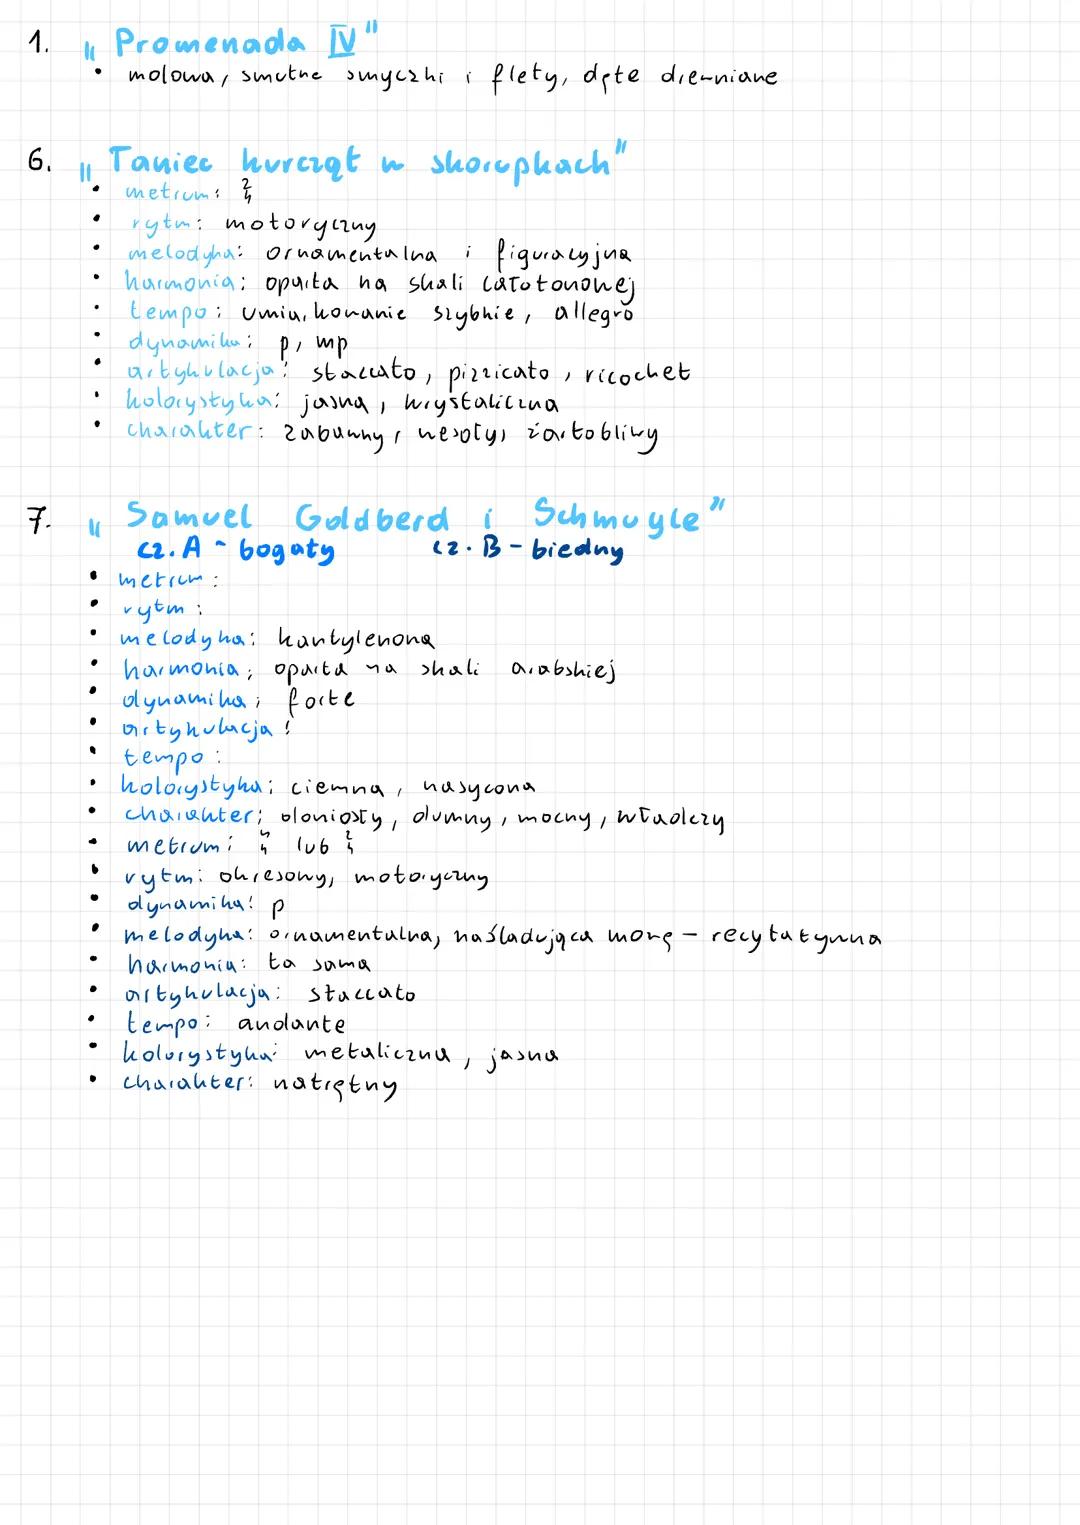 1. "Promenada IV"
• molowa, smutne smyczki i flety, dęte drewniane
6. "Taniec kurcząt w skorupkach"
• metrum: 2/4
• rytm: motoryczny
• melodyka: ornamentalna i figuracyjna
• harmonia: oparta na skali całotonowej
• tempo: umiarkowanie szybkie, allegro
• dynamika: p, mp
• artykulacja: staccato, pizzicato, ricochet
• kolorystyka: jasna, krystaliczna
• charakter: zabawny, wesoły, żartobliwy
7. "Samuel Goldberd i Schmuyle"
cz. A - bogaty cz. B - biedny
• metrum:
• rytm:
• melodyka: kantylenona
• harmonia: oparta na skali arabskiej
• dynamika: forte
• artykulacja:
• tempo:
• kolorystyka: ciemna, nasycona
• charakter: doniosły, dumny, mocny, władczy
• metrum: 4/4 lub 2/4
• rytm: okresowy, motoryczny
• dynamika: p
• melodyka: ornamentalna, naśladująca mowę - recytatywna
• harmonia: ta sama
• artykulacja: staccato
• tempo: andante
• kolorystyka: metaliczna, jasna
• charakter: natrętny